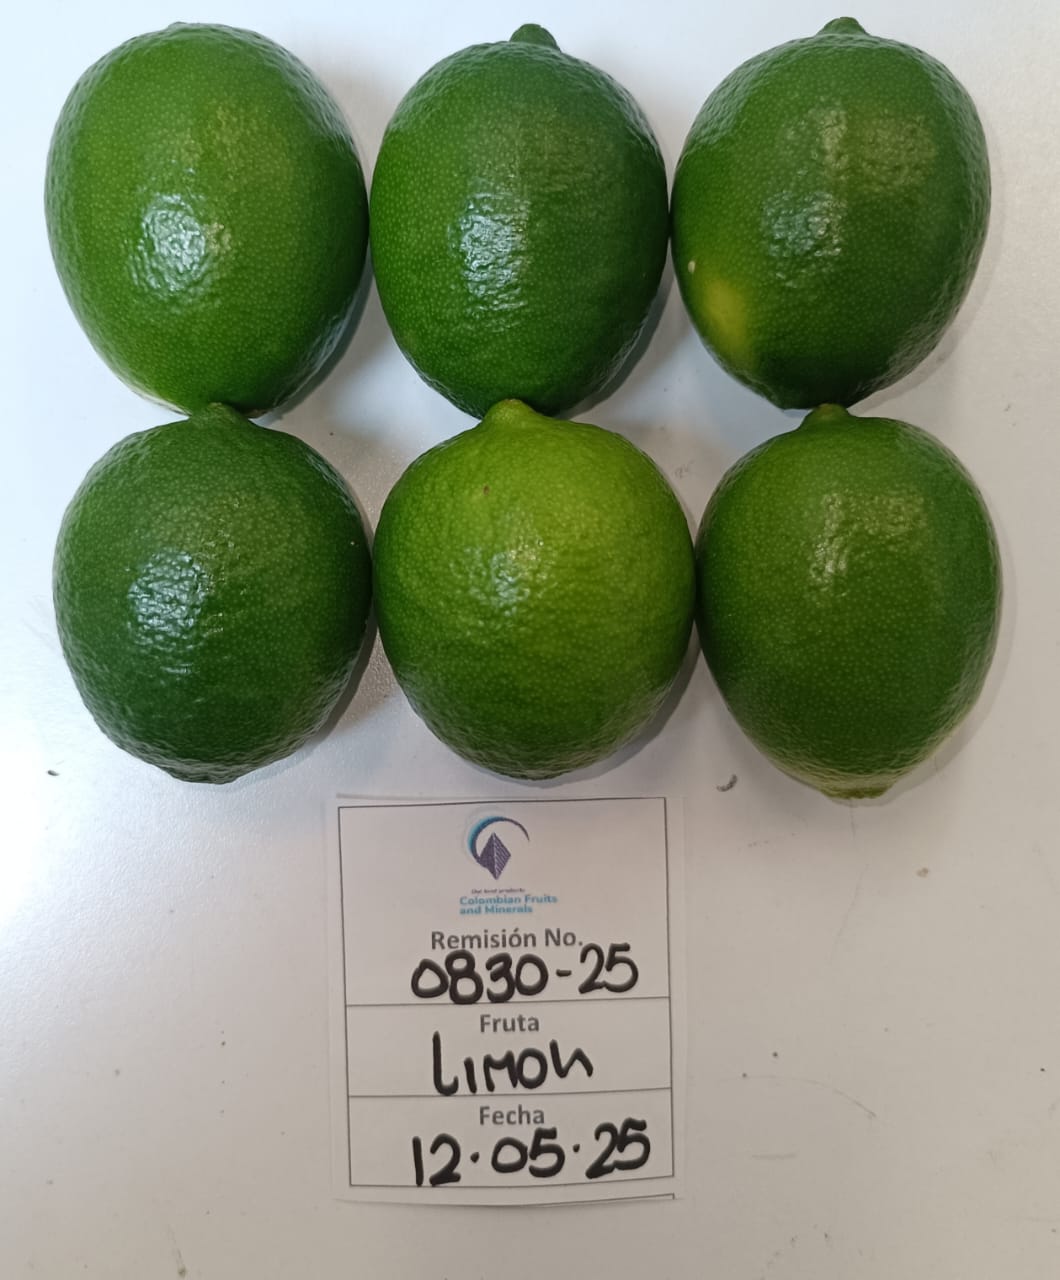 Our best products
Colombian Fruits
and Minerals
Remisión No.
0830-25
Fruta
LIMON
Fecha
12.05.25